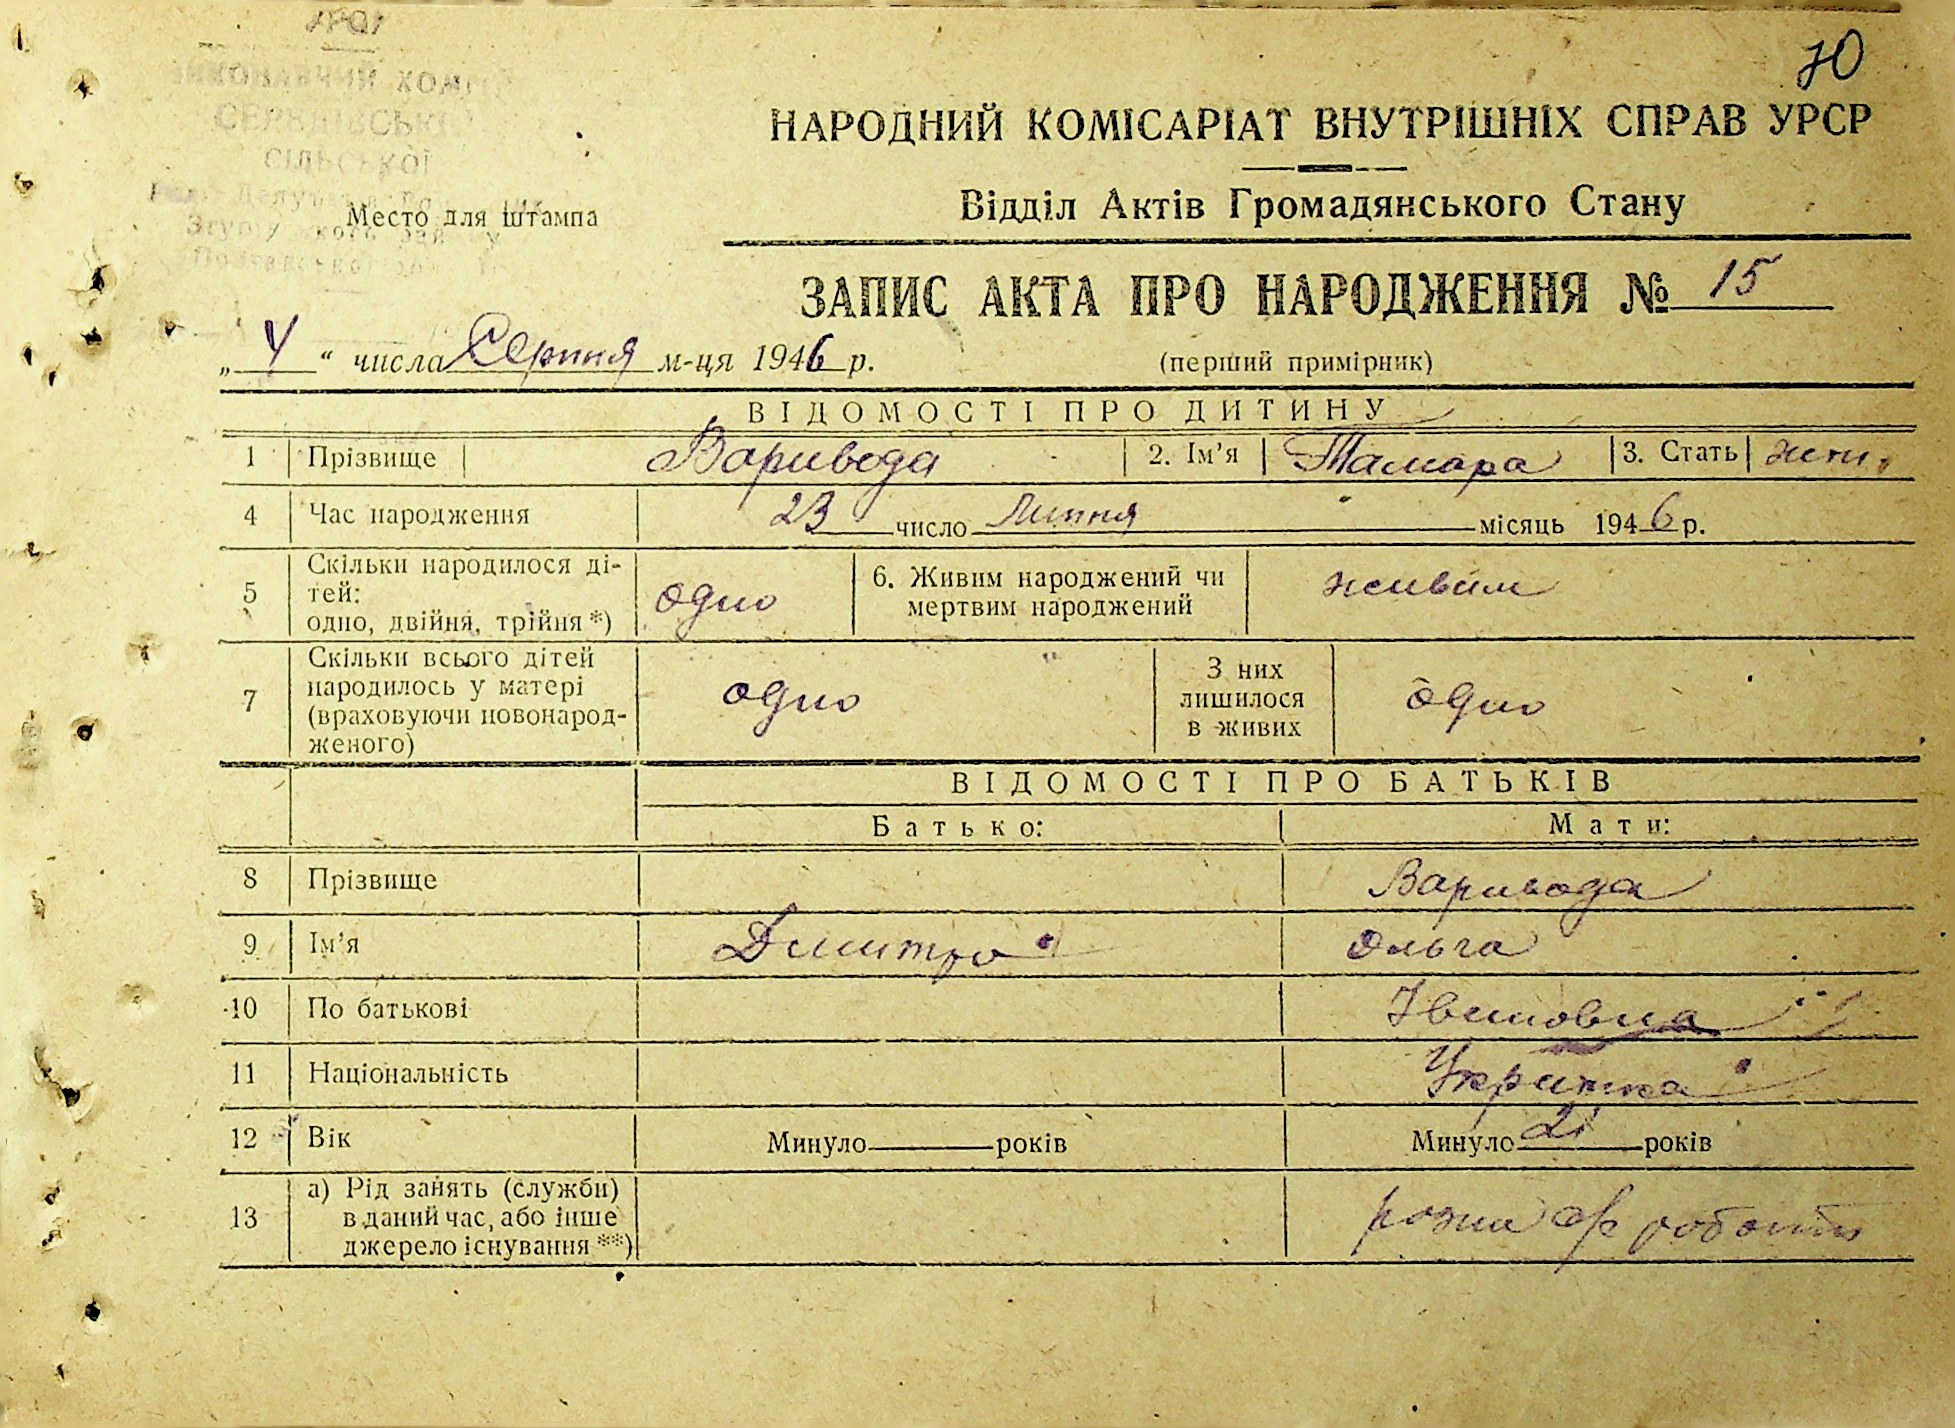 70
УРСР
ВИКОНАВЧИЙ КОМІТЕТ
СЕРЕДІВСЬКОЇ
СІЛЬСЬКОЇ
Место для штампа
НАРОДНИЙ КОМІСАРІАТ ВНУТРІШНІХ СПРАВ УРСР
Відділ Актів Громадянського Стану
ЗАПИС АКТА ПРО НАРОДЖЕННЯ № 15
„ 4 “ числа Серпня м-ця 1946 р.
(перший примірник)
ВІДОМОСТІ ПРО ДИТИНУ
1 Прізвище Варивода 2. Ім’я Тамара 3. Стать жін.
4 Час народження 23 число Липня місяць 1946 р.
5 Скільки народилося ді-
тей:
одно, двійня, трійня *) одно
6. Живим народжений чи
мертвим народжений живим
7 Скільки всього дітей
народилось у матері
(враховуючи новонарод-
женого) одно
З них
лишилося
в живих одно
ВІДОМОСТІ ПРО БАТЬКІВ
Батько: Мати:
8 Прізвище Варивода
9 Ім’я Дмитро Ольга
10 По батькові Івановна
11 Національність Укр
12 Вік Минуло років Минуло 21 років
13 а) Рід занять (служби)
в даний час, або інше
джерело існування **) розна с/г работи